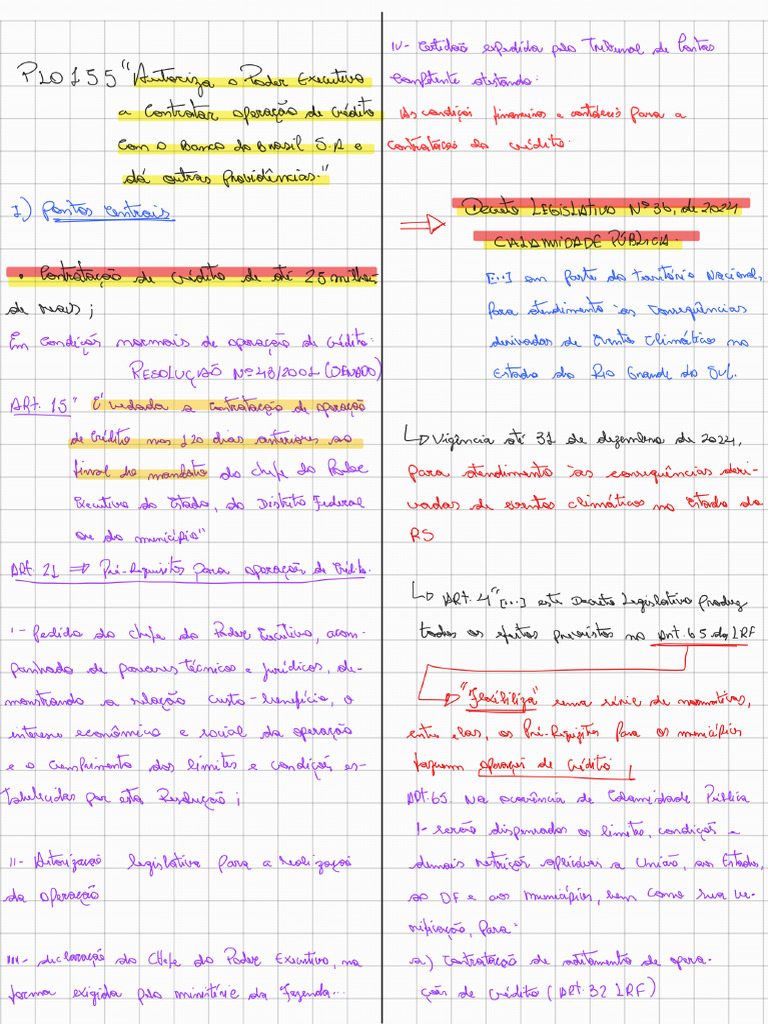 PLO 155 "Autoriza o Poder Executivo
a contratar operação de crédito
com o Banco do Brasil S.A e
dá outras providências."
1) Pontos Centrais
• Contratação de crédito de até 25 milhões
de reais;
Em condições normais de operação de crédito:
RESOLUÇÃO Nº 43/2001 (SENADO)
ART. 15 "É vedada a contratação de operação
de crédito nos 120 dias anteriores ao
final do mandato do chefe do Poder
Executivo do Estado, do Distrito Federal
ou do município"
ART. 21 ⇒ Pré-Requisitos para operação de Crédito.
I - Pedido do chefe do Poder Executivo, acom-
panhado de pareceres técnicos e jurídicos, de-
monstrando a relação custo-benefício, o
interesse econômico e social da operação
e o cumprimento dos limites e condições es-
tabelecidas por esta Resolução;
II - Autorização legislativa para a realização
da operação
III - declaração do Chefe do Poder Executivo, na
forma exigida pelo ministério da Fazenda...
IV - Certidão expedida pelo Tribunal de Contas
Competente atestando:
As condições financeiras e contábeis para a
contratação do crédito.
⇒ Decreto LEGISLATIVO Nº 36, de 2024
CALAMIDADE PÚBLICA.
[...] em parte do território Nacional,
para atendimento às consequências
derivadas de evento climáticos no
Estado do Rio Grande do Sul.
↳ Vigência até 31 de dezembro de 2024,
para atendimento às consequências deri-
vadas de eventos climáticos no Estado do
RS
↳ ART. 4 "[...] este Decreto Legislativo produz
todos os efeitos previstos no Art. 65 da LRF
"Flexibiliza" uma série de normativas,
entre elas, os Pré-Requisitos para os municípios
fazerem operações de crédito
ART. 65. Na ocorrência de Calamidade Pública
I - serão dispensados os limites, condições e
demais restrições aplicáveis a União, aos Estados,
ao DF e aos municípios, bem como sua ve-
rificação, para:
a) contratação de aditamento de opera-
ções de crédito (ART. 32 LRF)